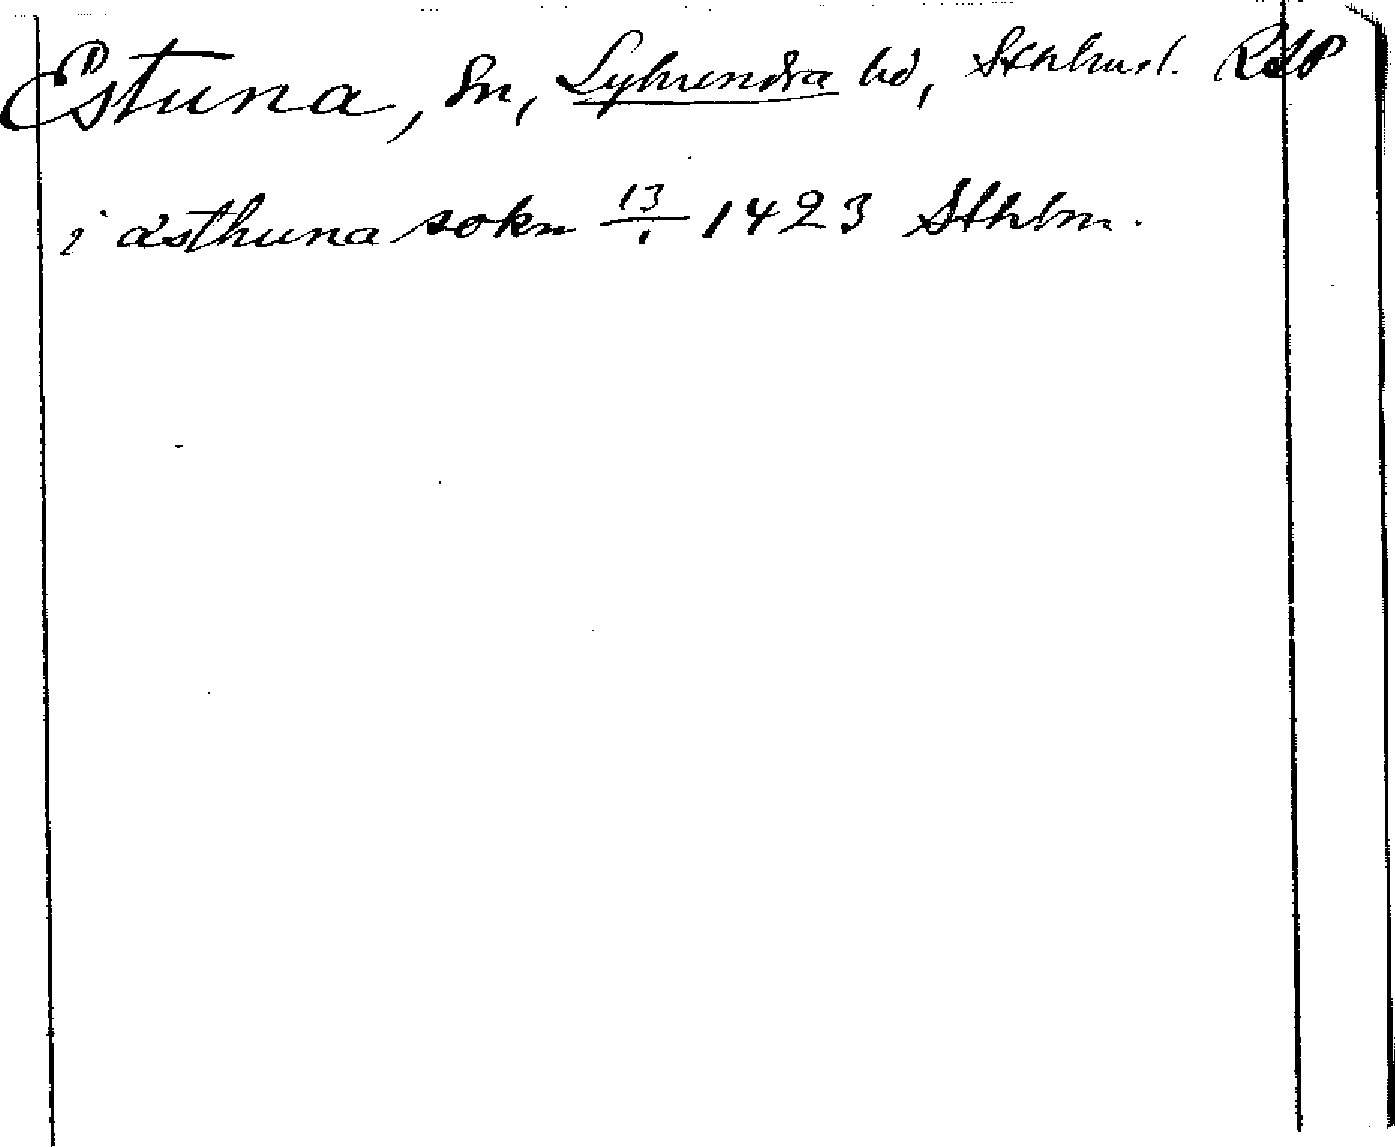 Estuna, Sn, Lyhundra hd, Sthlms l. RAP
i æsthuna sokn 13/1 1423 Sthlm.